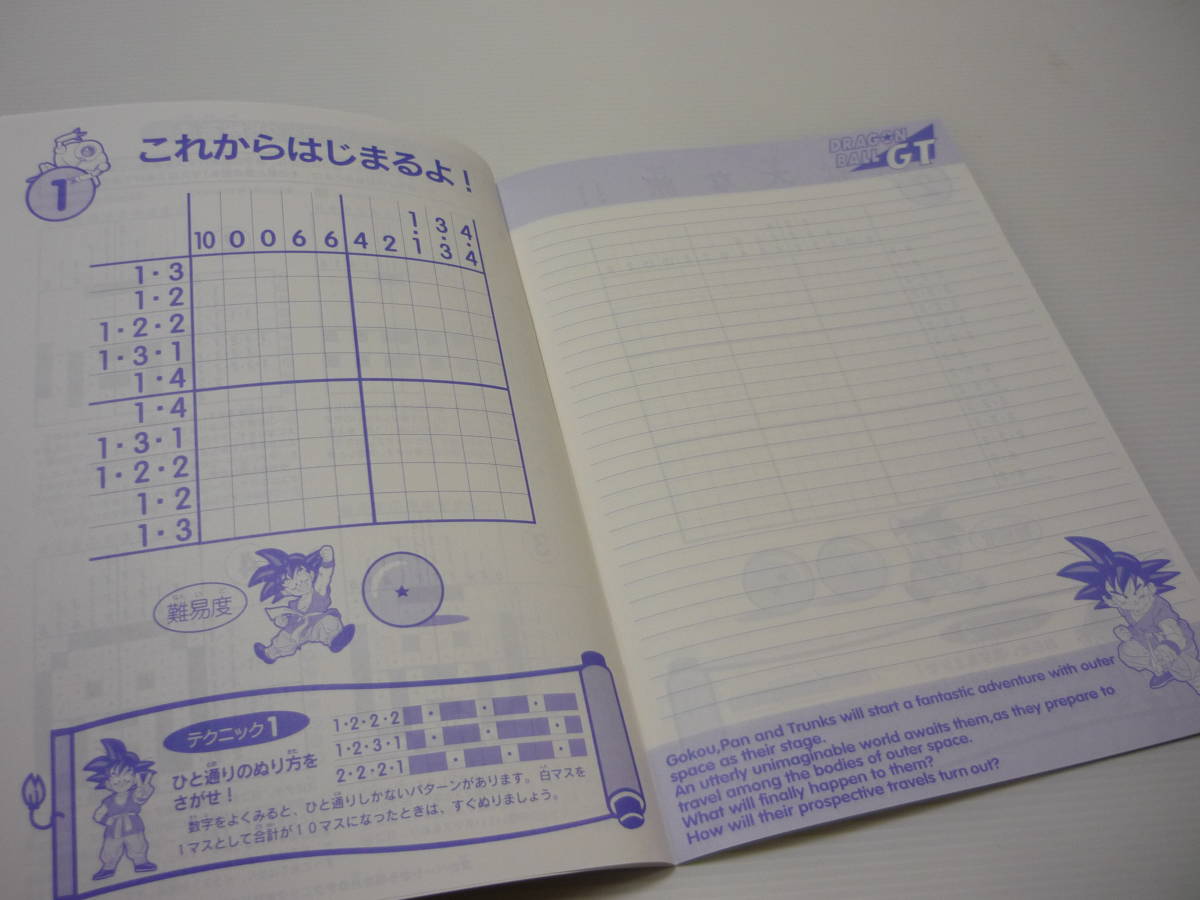 1
これからはじまるよ!
10 0 0 6 6 4 2 1・1 3・3 4・4
1・3
1・2
1・2・2
1・3・1
1・4
1・4
1・3・1
1・2・2
1・2
1・3
難易度
テクニック1
ひと通りのぬり方を
さがせ!
1・2・2・2
1・2・3・1
2・2・2・1
数字をよくみると、ひと通りしかないパターンがあります。白マスを
1マスとして合計が10マスになったときは、すぐぬりましょう。
DRAGON
BALL GT
Gokou,Pan and Trunks will start a fantastic adventure with outer
space as their stage.
An utterly unimaginable world awaits them,as they prepare to
travel among the bodies of outer space.
What will finally happen to them?
How will their prospective travels turn out?